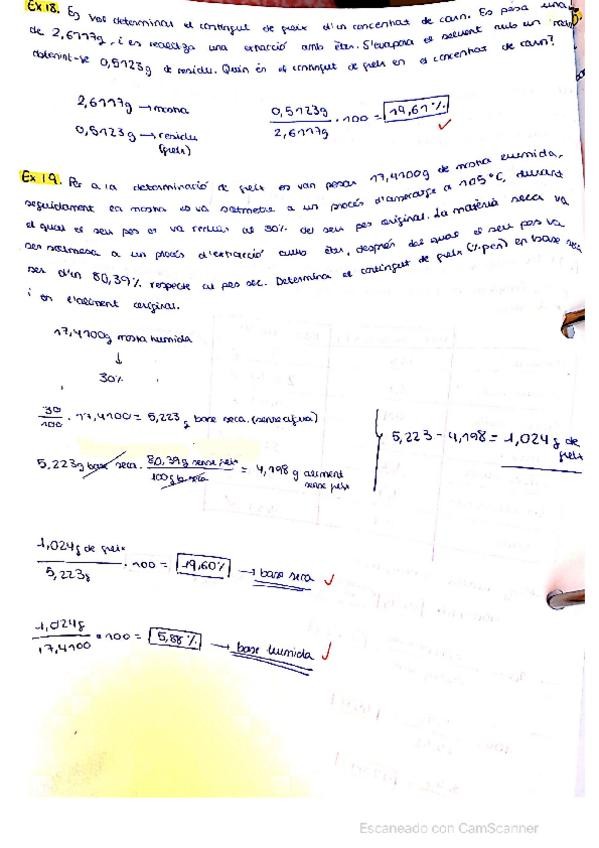 Ex 18. Es vol determinar el contingut de greix d'un concentrat de carn. Es pesa una
de 2,6117g, i es realitza una extracció amb èter. S'evapora el solvent amb un
obtenint-se 0,5123g de residu. Quin és el contingut de greix en el concentrat de carn?
2,6117g → mostra
0,5123g → residu
(greix)
0,5123g / 2,6117g · 100 = 19,61% ✓
Ex 19. Per a la determinació de greix es van pesar 17,4100g de mostra humida,
seguidament la mostra es va sotmetre a un procés d'assecatge a 105°C, durant
el qual el seu pes es va reduir al 30% del seu pes original. La matèria seca va
ser sotmesa a un procés d'extracció amb èter, després del qual el seu pes va
ser d'un 80,39% respecte al pes sec. Determina el contingut de greix (% pes) en base seca
i en l'aliment original.
17,4100g mostra humida
↓
30%
30/100 · 17,4100 = 5,223g base seca. (sense aigua)
5,223g base seca · 80,39g sense greix / 100g b. seca = 4,198g aliment
sense greix
5,223 - 4,198 = 1,024g de
greix
1,024g de greix / 5,223g · 100 = 19,60% → base seca ✓
1,024g / 17,4100 · 100 = 5,88% → base humida ✓
Escaneado con CamScanner